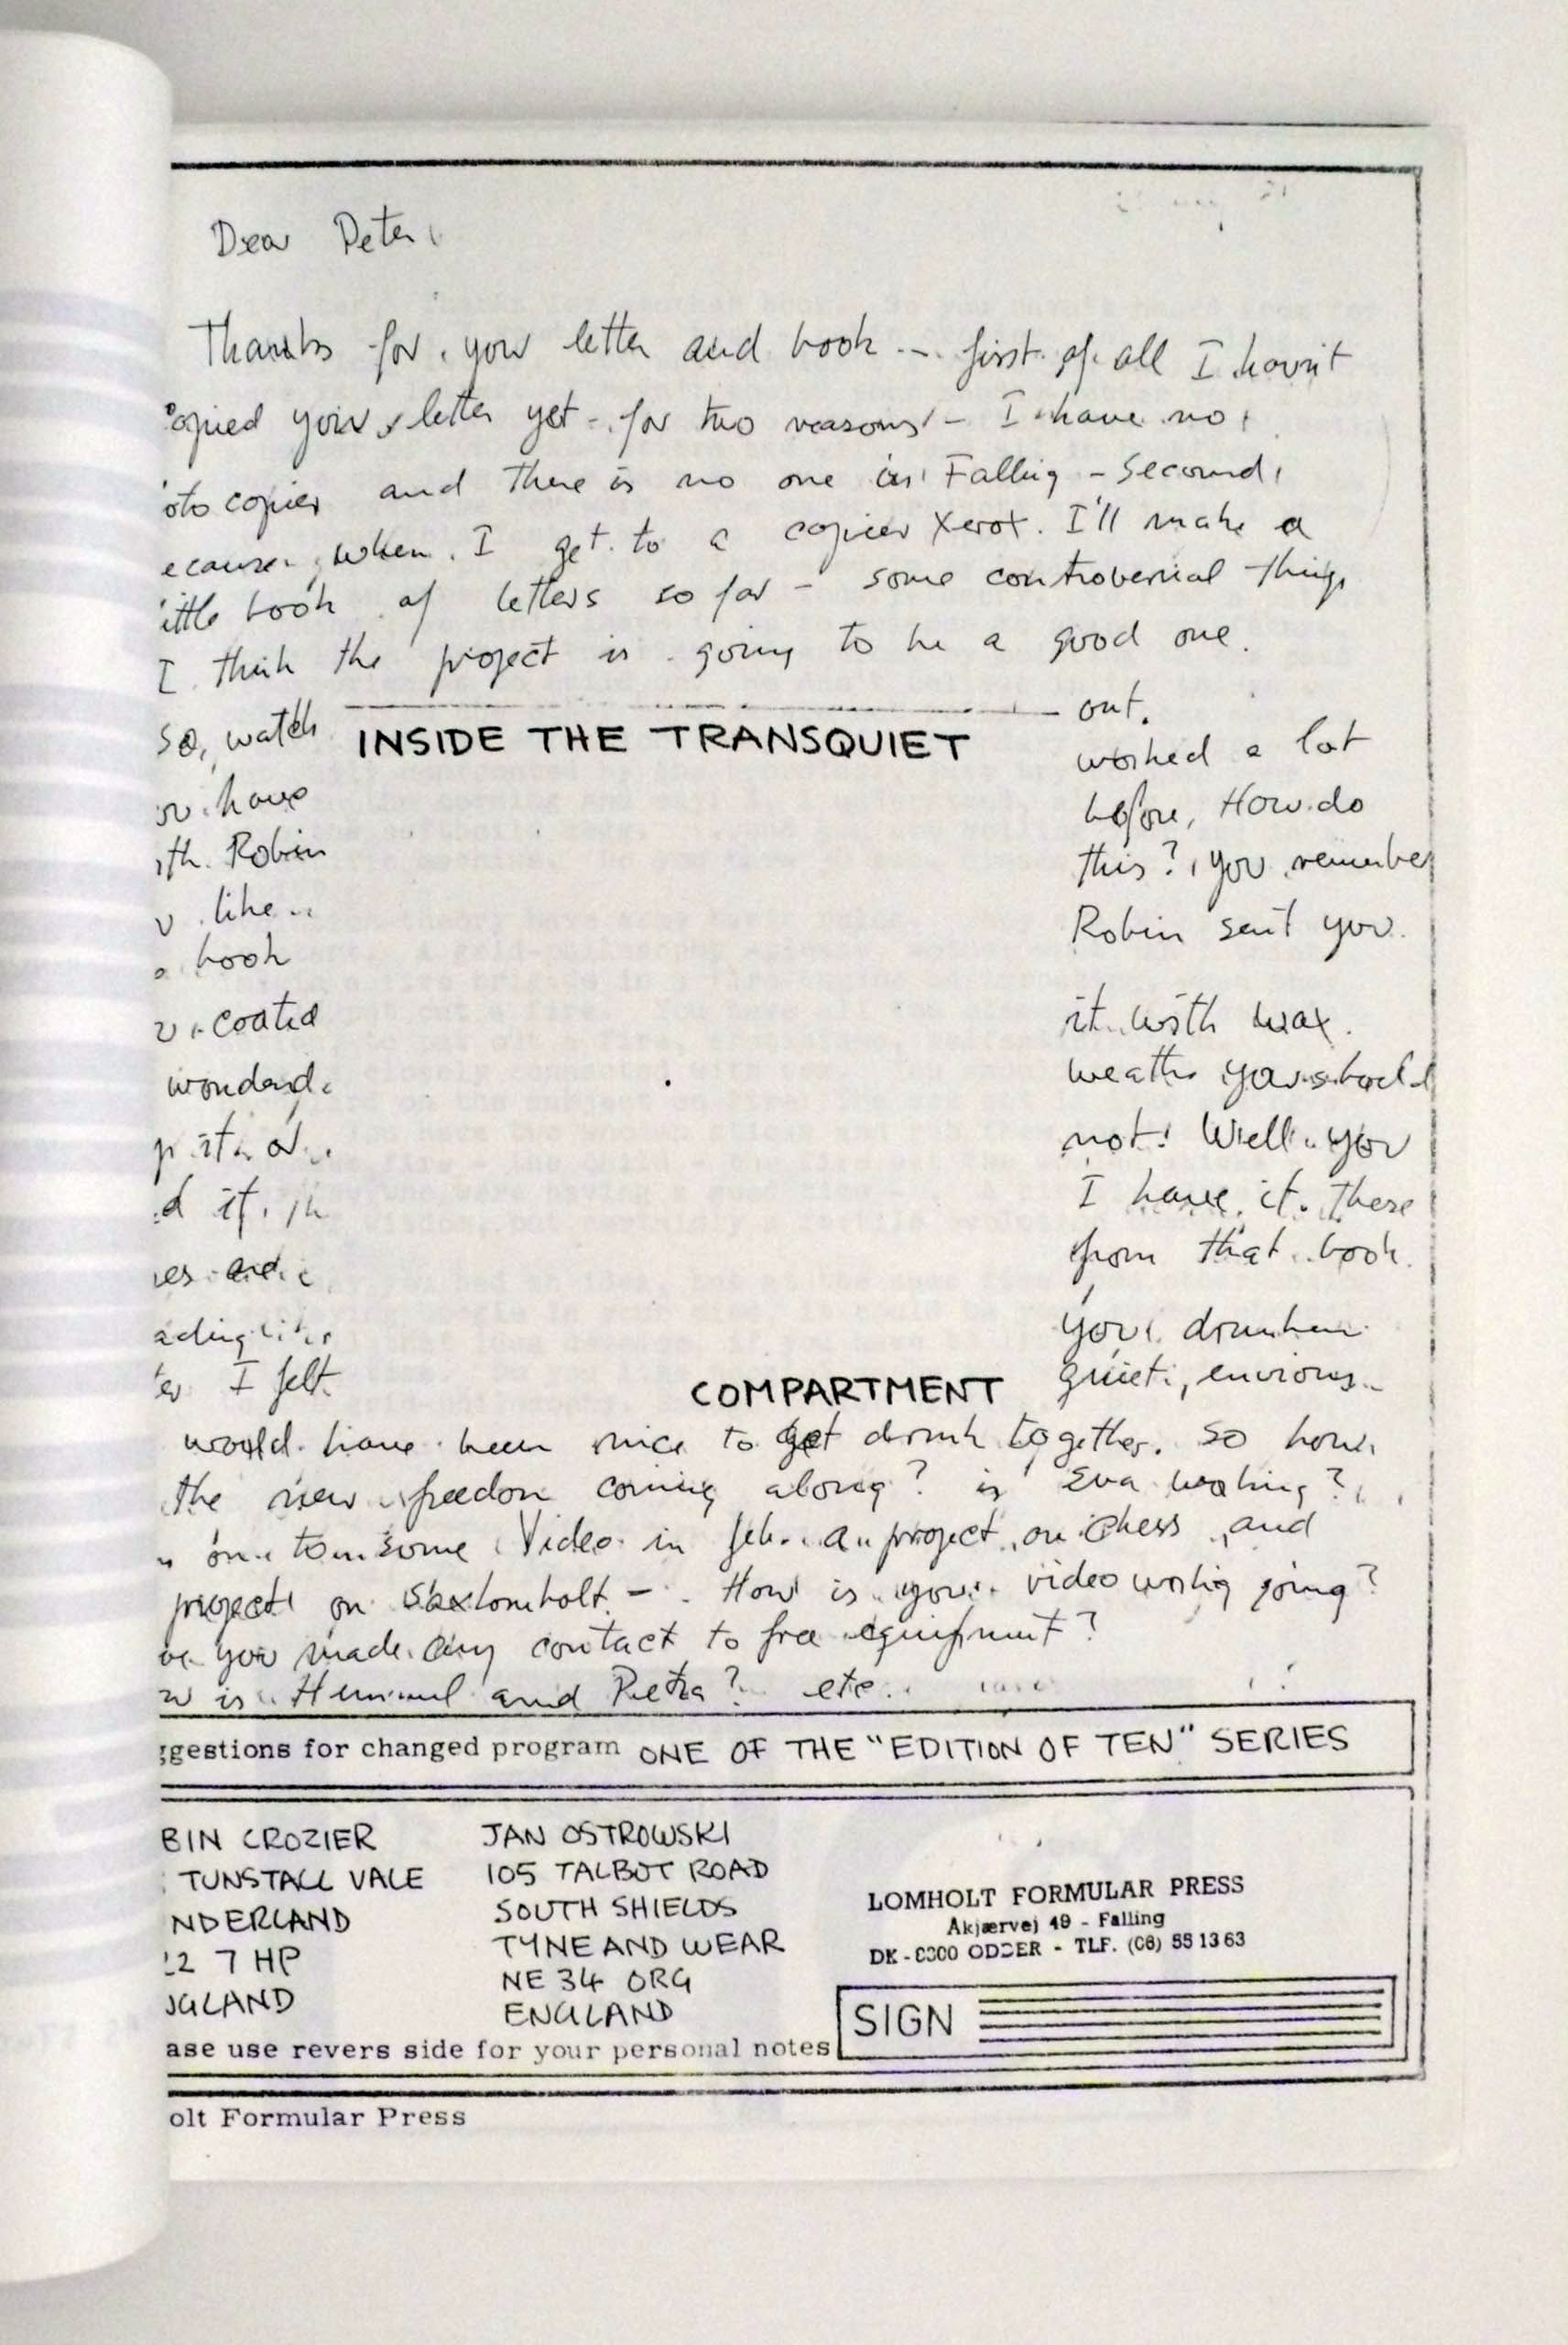 Dear Peter
Thanks for your letter and book -- first of all I havn't
opied your letter yet - for two reasons - I have no
oto copier and there is no one in Falling - Second,
ecause when I get to a copier Xerox. I'll make a
ittle book of letters so far - some controversial things
I think the project is going to be a good one.
so, watch out.
INSIDE THE TRANSQUIET
have worked a lot
ith Robin before, How do
like.. this? you remember
book Robin sent you.
coated it with wax.
wonderd
not! Well you
d it, I have it. There
from that book.
ading your drunken
I felt quiet, envious..
COMPARTMENT
would have been nice to get drunk together. So how
the new freedom coming along? is Eva working?
some Video in feb. a project on chess and
project on How is your video workig going?
you made any contact to free equipment?
is and Petra? etc..
ggestions for changed program ONE OF THE "EDITION OF TEN" SERIES
BIN CROZIER
TUNSTALL VALE
NDERLAND
2 7 HP
GLAND
JAN OSTROWSKI
105 TALBOT ROAD
SOUTH SHIELDS
TYNE AND WEAR
NE 34 ORG
ENGLAND
LOMHOLT FORMULAR PRESS
Akjærvej 49 - Falling
DK - 8300 ODDER - TLF. (06) 55 13 63
SIGN
ase use revers side for your personal notes
olt Formular Press